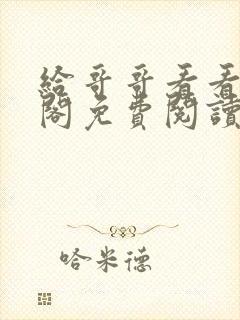 給哥哥看看
閣免費閱讀
哈米德